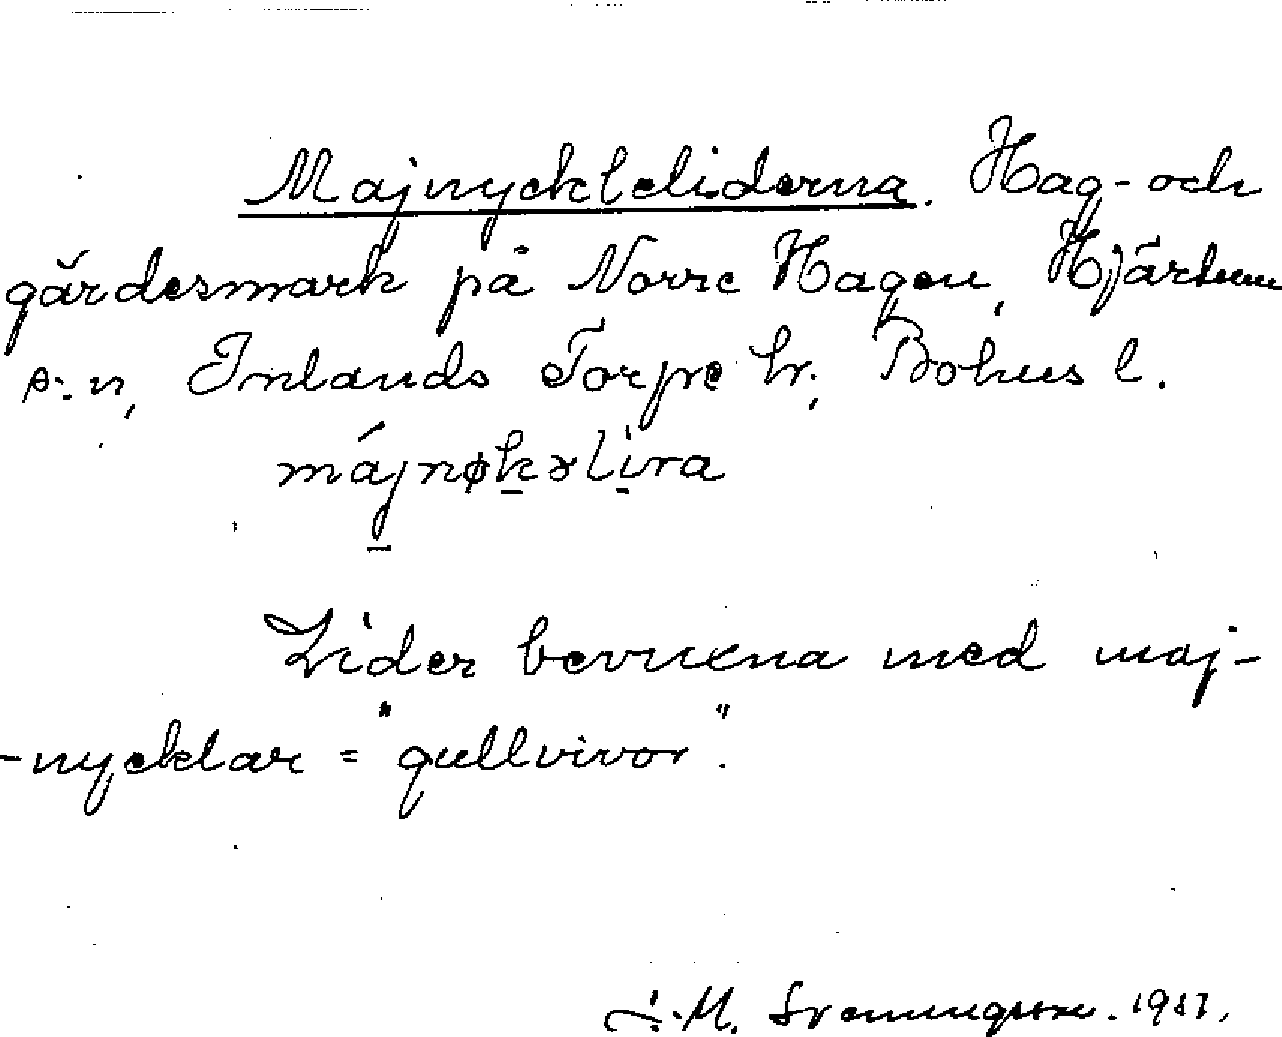 Majnyckleliderna. Hag- och
gärdesmark på Norre Hagen, Hjärtum
s:n, Inlands Torpe hr, Bohus l.
májnøkəlira
Lider bevuxna med maj-
-nycklar = "gullvivor".
M. Svenningsson.